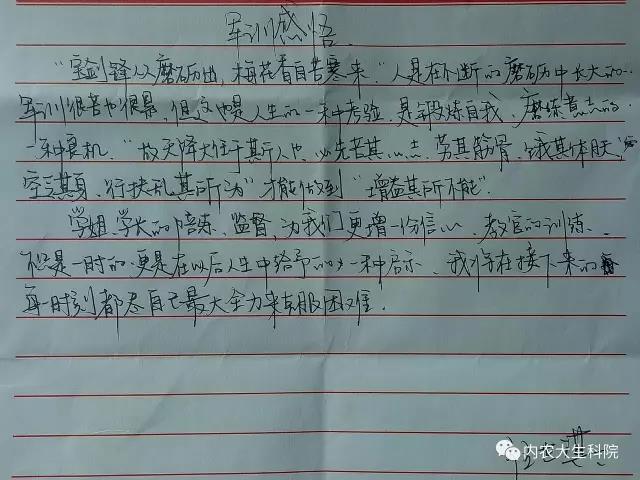 军训感悟
"宝剑锋从磨砺出,梅花香自苦寒来."人是在不断的磨砺中长大的.
军训很苦也很累,但这也是人生的一种考验.是锻炼自我,磨练意志的
一种良机."故天降大任于其行人也,必先苦其心志,劳其筋骨,饿其体肤,
空乏其身,行拂乱其所为"才能做到"增益其所不能".
学姐、学长的陪练、监督,为我们更增一份信心、教官的训练、
不仅是一时的.更是在以后人生中给予的一种启示.我将在接下来的
每一时刻都尽自己最大全力来克服困难.
内农大生科院